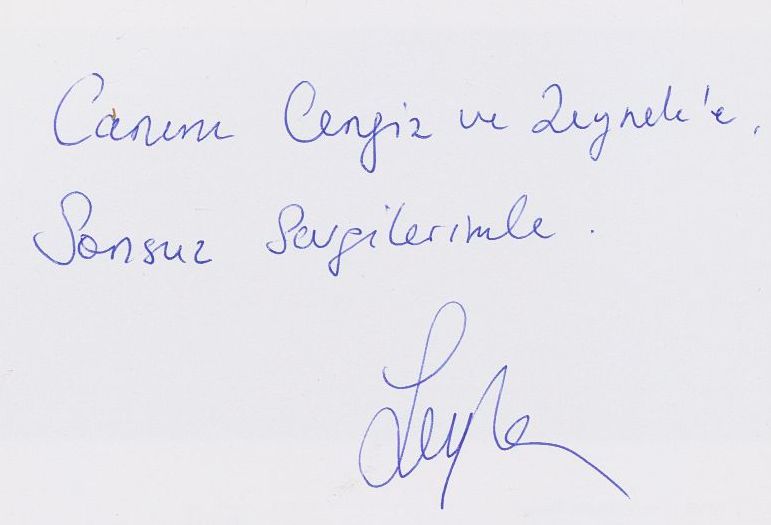 Canım Cengiz ve Zeynek'e,
Sonsuz Sevgilerimle.
Leyla